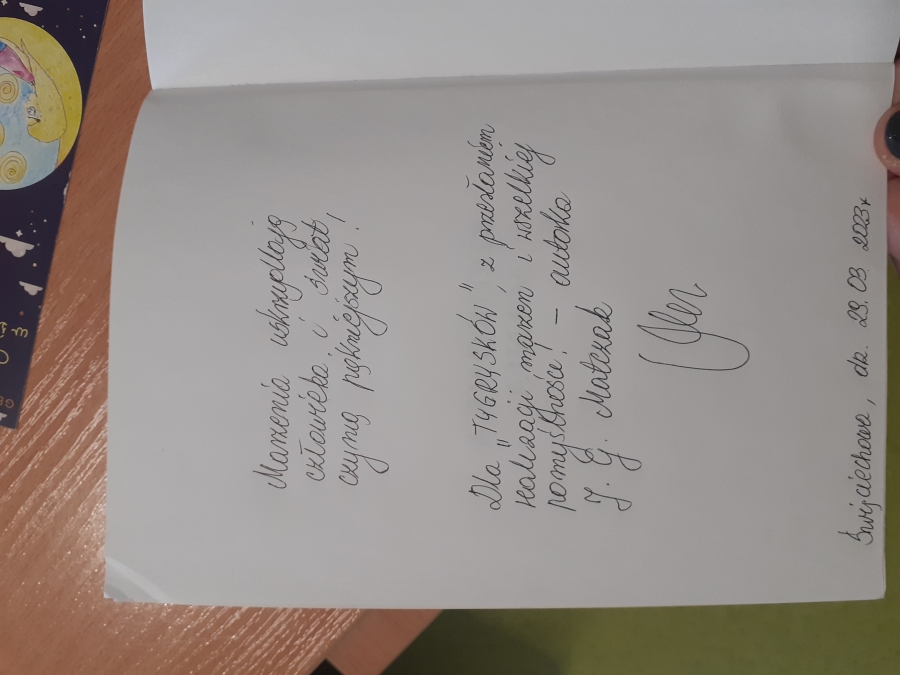 Marzenia uskrzydlają
człowieka i świat
czynią piękniejszym!
Dla „TYGRYSKÓW", z przesłaniem
realizacji marzeń i wszelkiej
pomyślności. – autorka
J. G. Matczak
Święciechowa, dn. 29.03 2023r